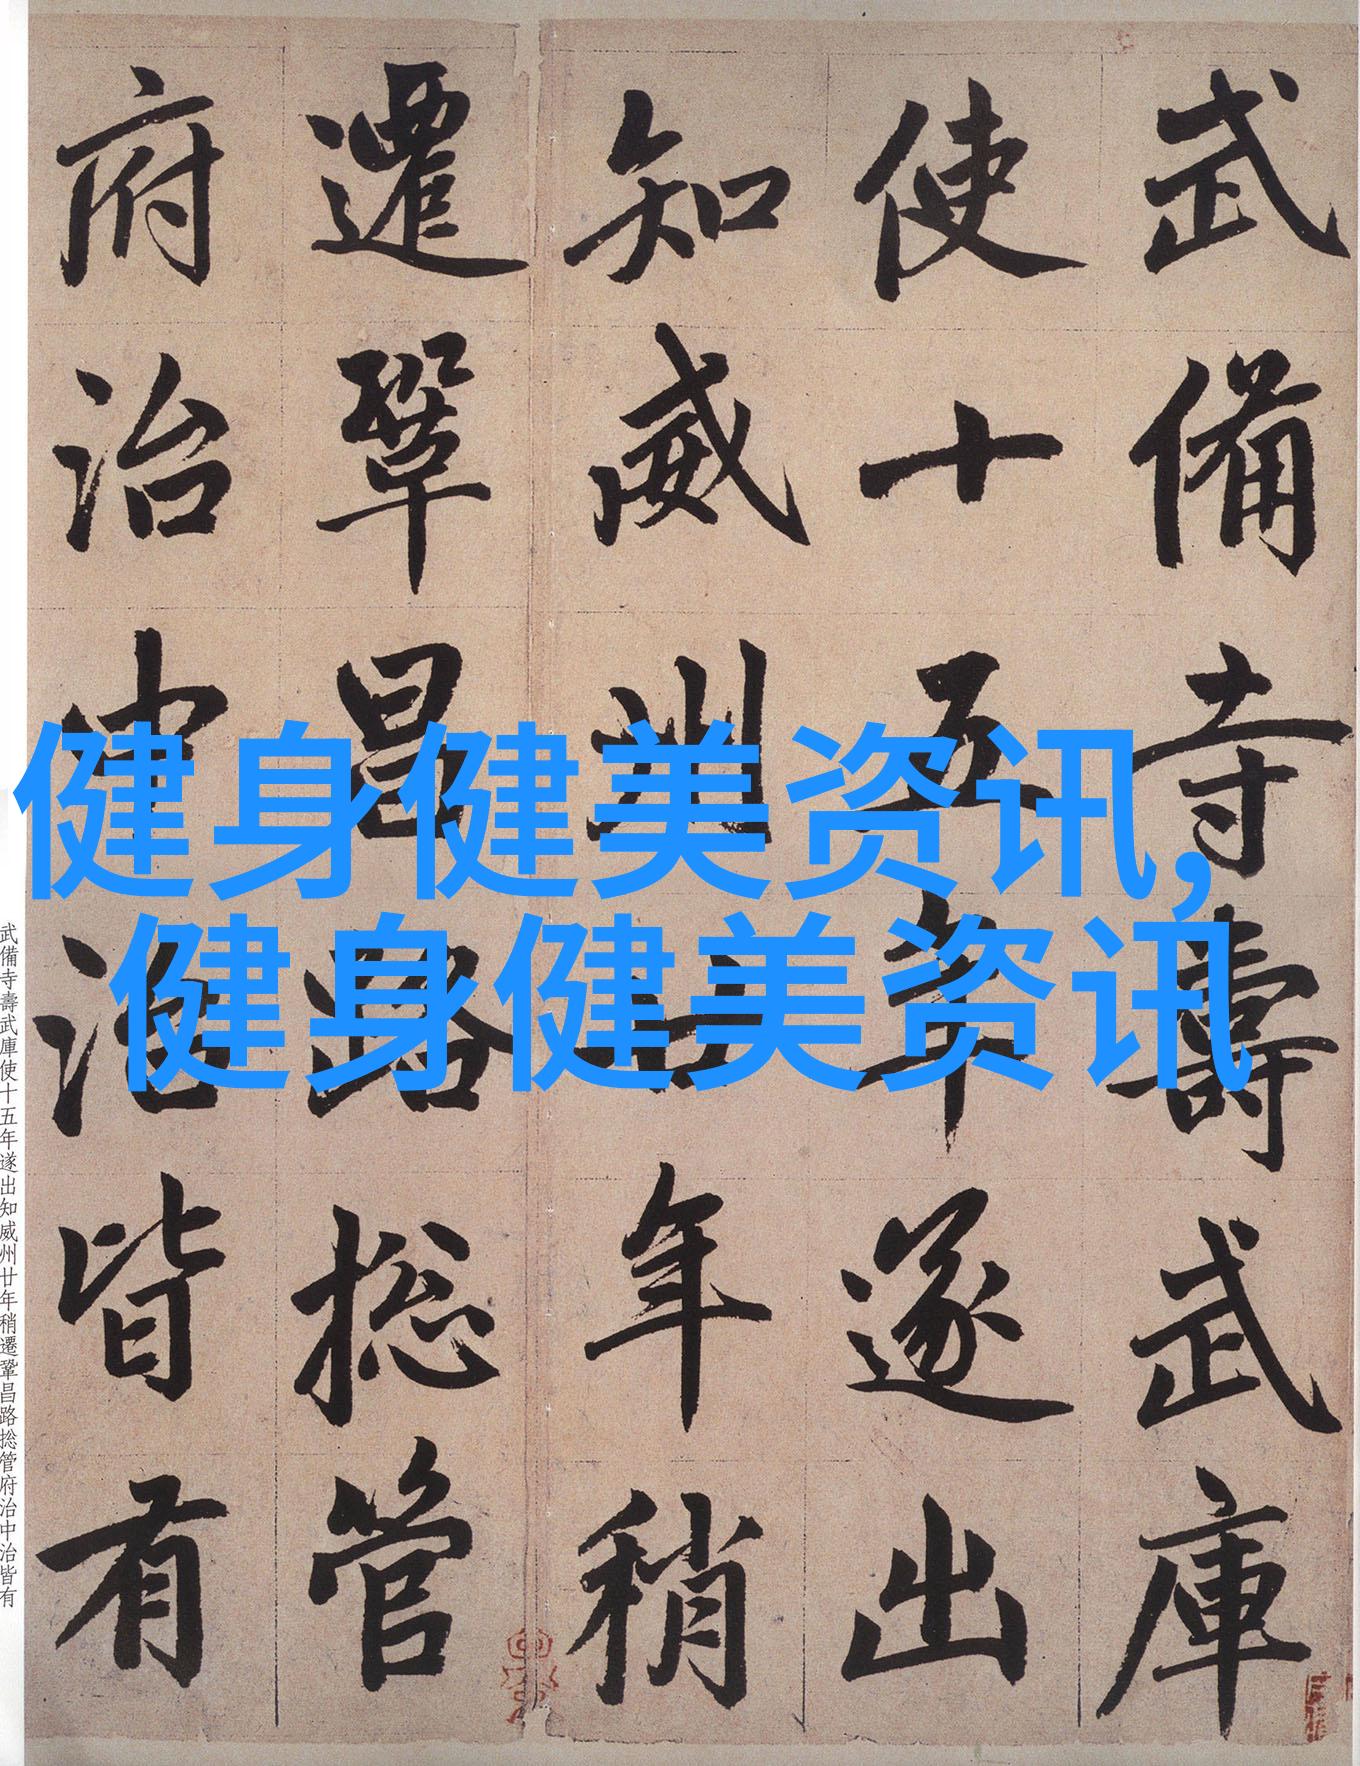 武備寺壽武庫
使十五年遂出
知威州廿年稍
遷鞏昌路捴管
府治中治皆有
健身健美资讯,
健身健美资讯
武備寺壽武庫使十五年遂出知威州廿年稍遷鞏昌路捴管府治中治皆有